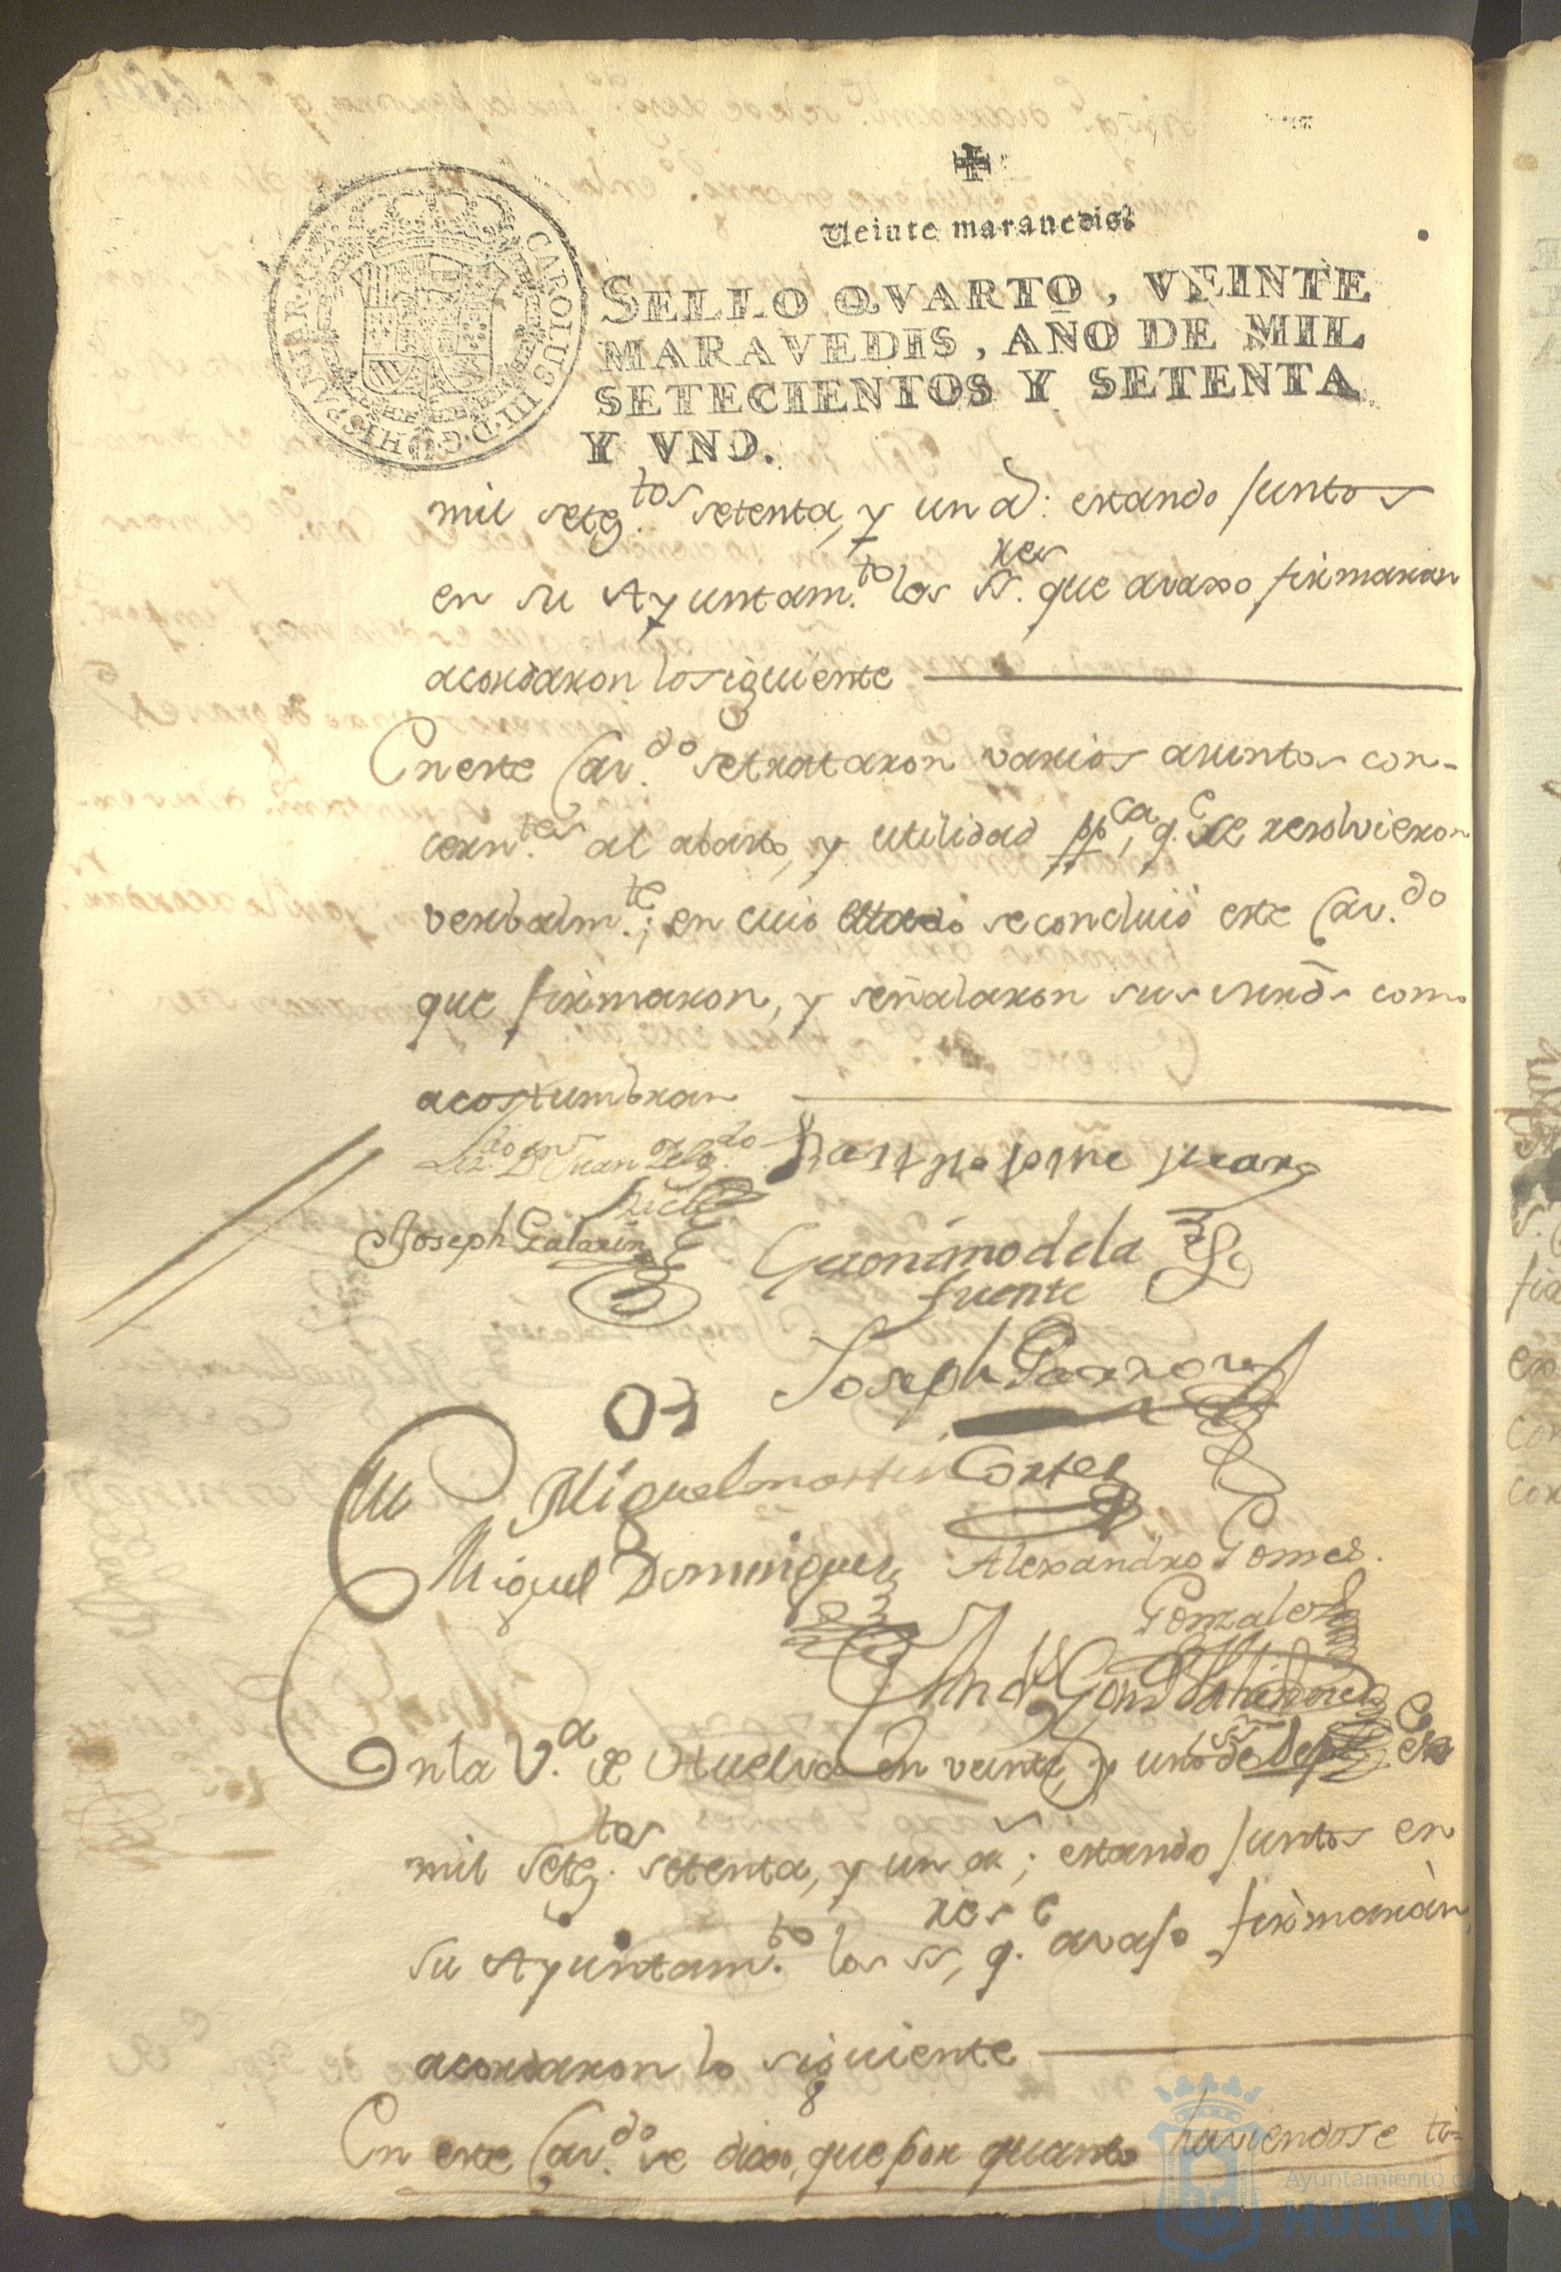 ✠
Veinte maravedis.
SELLO QVARTO, VEINTE
MARAVEDIS, AÑO DE MIL
SETECIENTOS Y SETENTA
Y VNO.
CAROLUS III D. G. HISPANIAR. REX
mil seteg.tos setenta, y un a.: estando juntos
en su Ayuntam.to los ss.res que avaxo firmaran
acordaron lo siguiente
En este Cav.do se trataron varios asuntos con-
cern.tes al abasto, y utilidad pp.ca, q.e se resolvieron
verbalm.te; en cuio se concluió este Cav.do
que firmaron, y señalaron sus mrds como
acostumbran
Liz.do Dn Juan Delg.do
Joseph Galarin
Geronimo de la
fuente
Joseph
Miguel martin Cortes
Miguel Dominguez
Alexandro Gomes.
Gonzales
En la V.a de Huelva en veinte, y uno de Sep.e
mil seteg.tos setenta, y un a; estando juntos en
su Ayuntam.to los ss.res, q.e avajo firmaràn
acordaron lo siguiente
En este Cav.do se dixo, que por quanto haviendose
Ayuntamiento de
HUELVA